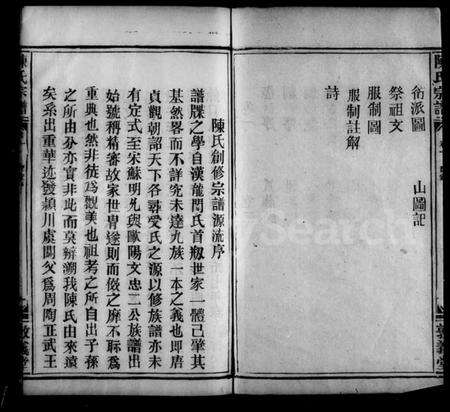 衍派圖　　山圖記
祭祖文
服制圖
服制註解
詩
陳氏宗譜
敦義堂
陳氏創修宗譜源流序
譜牒之學自漢龍門氏首剏世家一體已肇其
基然畧而不詳究未達九族一本之義也卽唐
貞觀朝詔天下各尋受氏之源以修族譜亦未
有定式至宋蘇明允與歐陽文忠二公族譜出
始號稱精審故家世冑遂則而倣之靡不聆爲
重典也然非徒爲觀美也祖考之所自出子孫
之所由分亦實非此而莫辨溯我陳氏由來遠
矣系出重華迹發潁川虞閼父爲周陶正武王
陳氏宗譜
敦義堂